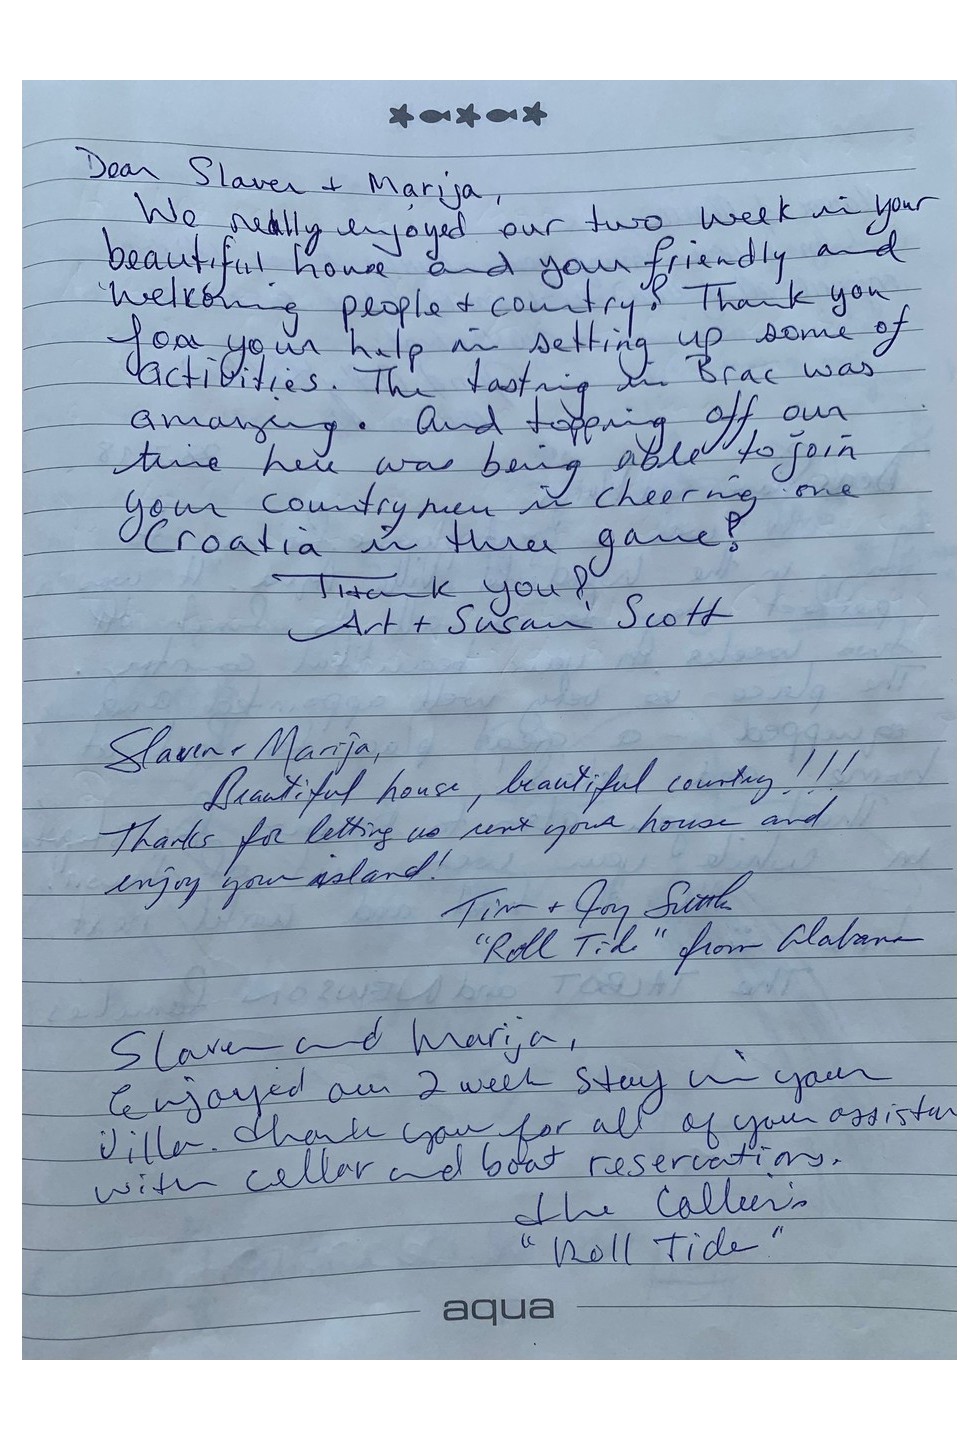 Dear Slaven + Marija,
We really enjoyed our two week in your
beautiful house and your friendly and
welkoming people + country! Thank you
for your help in setting up some of
activities. The tasting in Brac was
amazing. And topping off our
time here was being able to join
your countrymen in cheering one
Croatia in three game!
Thank you!
Art + Susan Scott
Slaven + Marija,
Beautiful house, beautiful country!!!
Thanks for letting us rent your house and
enjoy your island!
Tim + Joy
"Roll Tide" from Alabama
Slaven and Marija,
Enjoyed our 2 week stay in your
Villa. Thank you for all of your assistan
with cellar and boat reservations.
The
"Roll Tide"
aqua